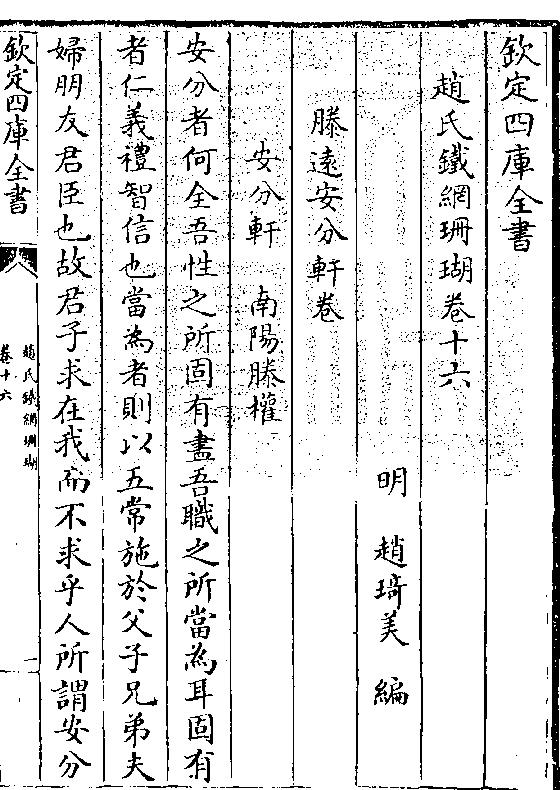 欽定四庫全書
趙氏鐵網珊瑚卷十六
明 趙琦美 編
滕遠安分軒卷
安分軒 南陽滕權
安分者何全吾性之所固有盡吾職之所當為耳固有
者仁義禮智信也當為者則以五常施於父子兄弟夫
婦朋友君臣也故君子求在我而不求乎人所謂安分
欽定四庫全書
趙氏鐵網珊瑚
卷十六
一